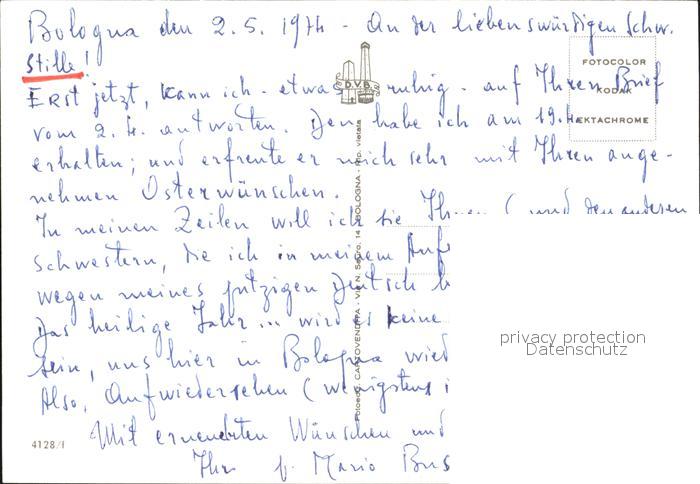 Bologna den 2.5.1974 - An der liebenswürdigen Schw.
Stille!
Erst jetzt, kann ich - etwas ruhig - auf Ihren Brief
vom 2.4. antworten. Den habe ich am 19.4.
erhalten; und erfreute er mich sehr mit Ihren ange-
nehmen Osterwünschen.
In meinen Zeilen will ich sie Ihnen (und den anderen
Schwestern, die ich in meinem Auf
wegen meines putzigen Deutsch b
Das heilige Jahr... wird es keine
sein, uns hier in Bologna wied
Also, Aufwiedersehen (wenigstens i
Mit erneuerten Wünschen und
Ihr p. Mario Bus
FOTOCOLOR
KODAK
EKTACHROME
D.V.B.
Fotoediz. CARTOVENDITA - Via N. Sauro, 14 - BOLOGNA - Rip. vietata
4128/f
privacy protection
Datenschutz